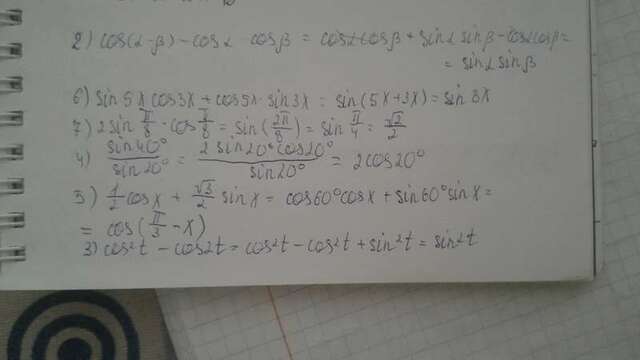 2) cos(α-β) - cosα cosβ = cosαcosβ + sinα sinβ - cosαcosβ =
= sinα sinβ
6) sin5x cos3x + cos5x · sin3x = sin(5x+3x) = sin8x
7) 2sin π/8 · cos π/8 = sin(2π/8) = sin π/4 = √2/2
4) sin40°/sin20° = 2sin20°cos20°/sin20° = 2cos20°
5) 1/2 cosx + √3/2 sinx = cos60°cosx + sin60°sinx =
= cos(π/3 - x)
3) cos²t - cos2t = cos²t - cos²t + sin²t = sin²t